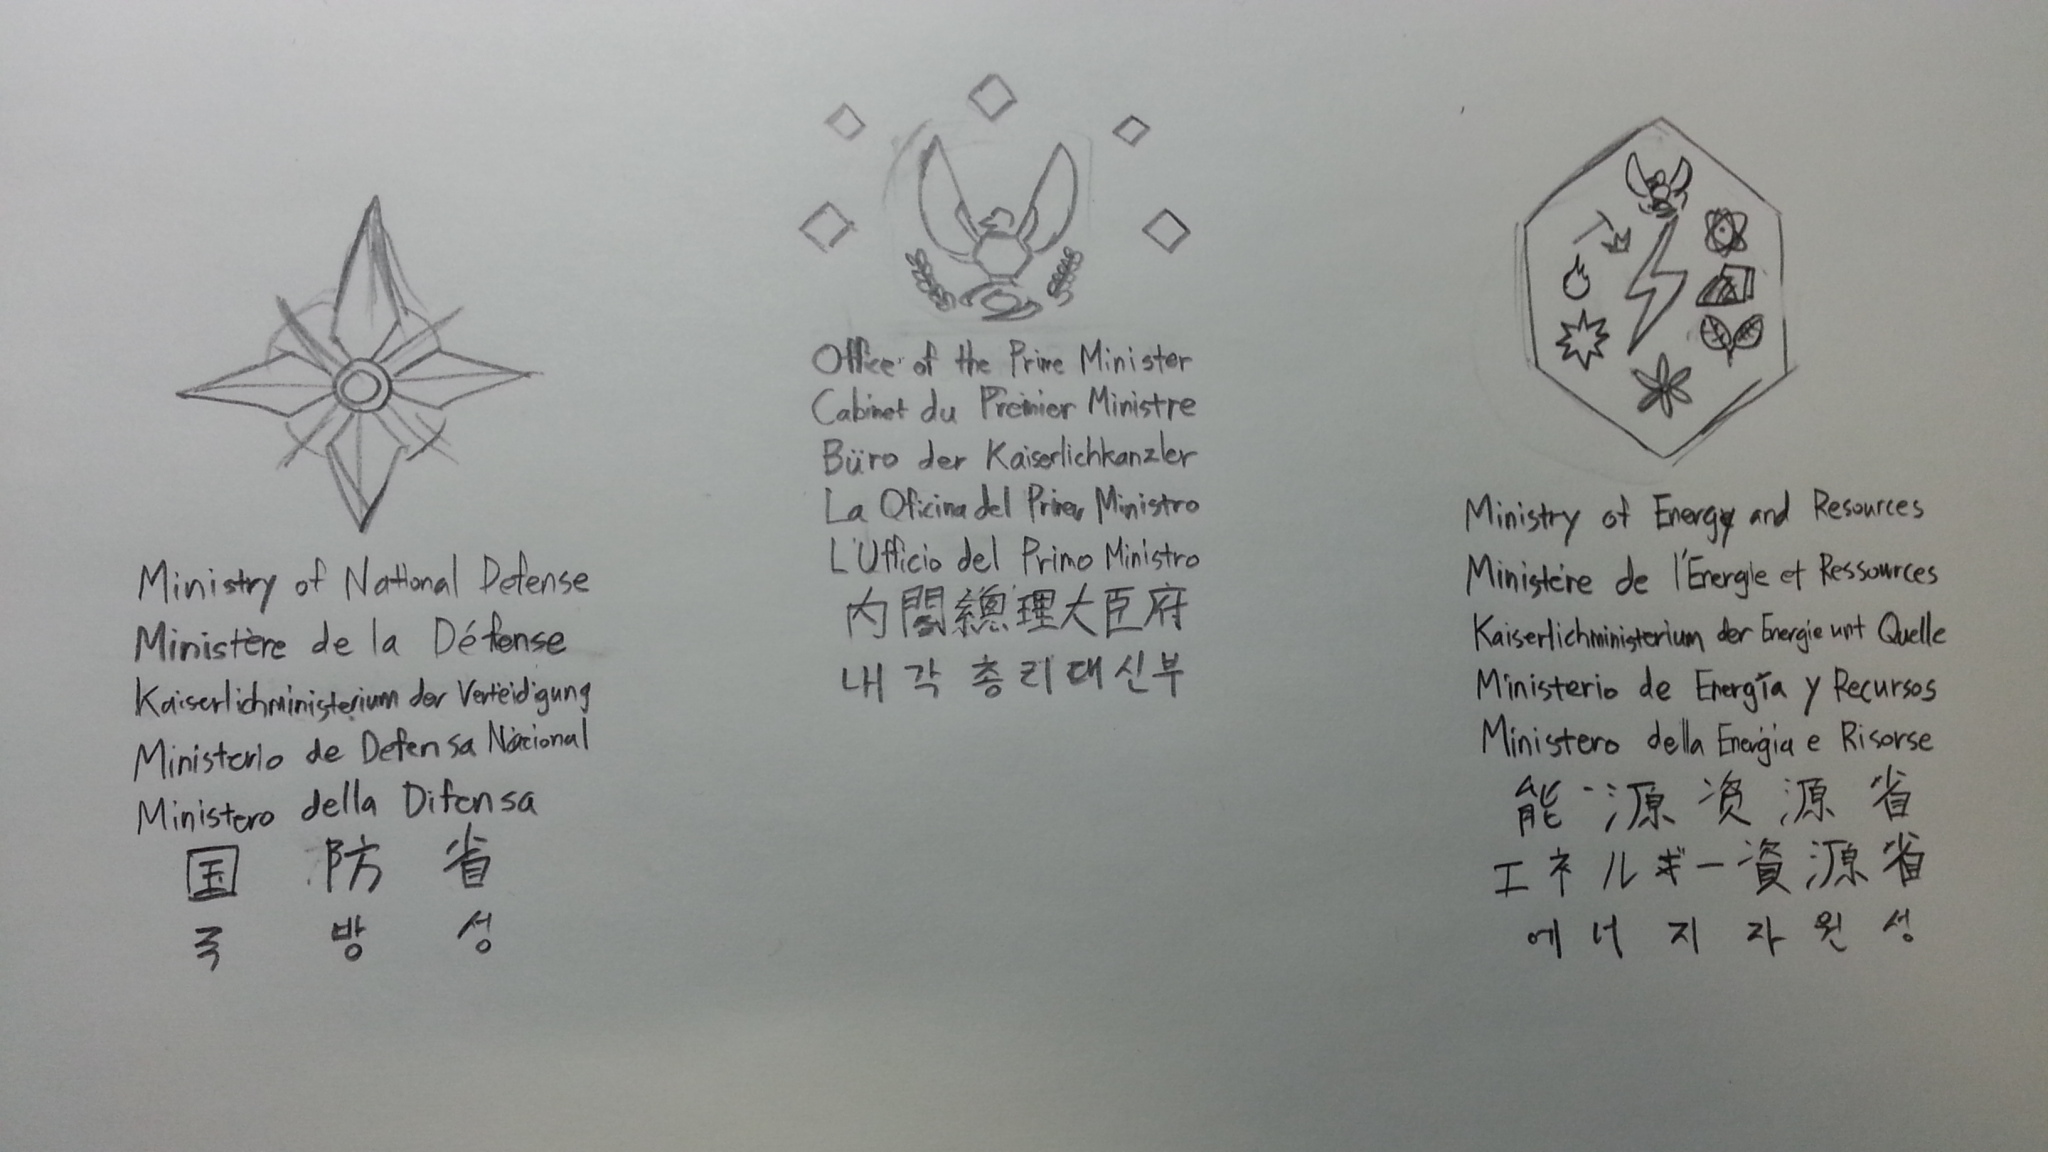 Ministry of National Defense
Ministère de la Défense
Kaiserlichministerium der Verteidigung
Ministerio de Defensa Nacional
Ministero della Difensa
国防省
국방성
Office of the Prime Minister
Cabinet du Premier Ministre
Büro der Kaiserlichkanzler
La Oficina del Primer Ministro
L'Ufficio del Primo Ministro
内閣總理大臣府
내각총리대신부
Ministry of Energy and Resources
Ministére de l'Énergie et Ressources
Kaiserlichministerium der Energie unt Quelle
Ministerio de Energía y Recursos
Ministero della Energia e Risorse
能·源资源省
エネルギー資源省
에너지자원성